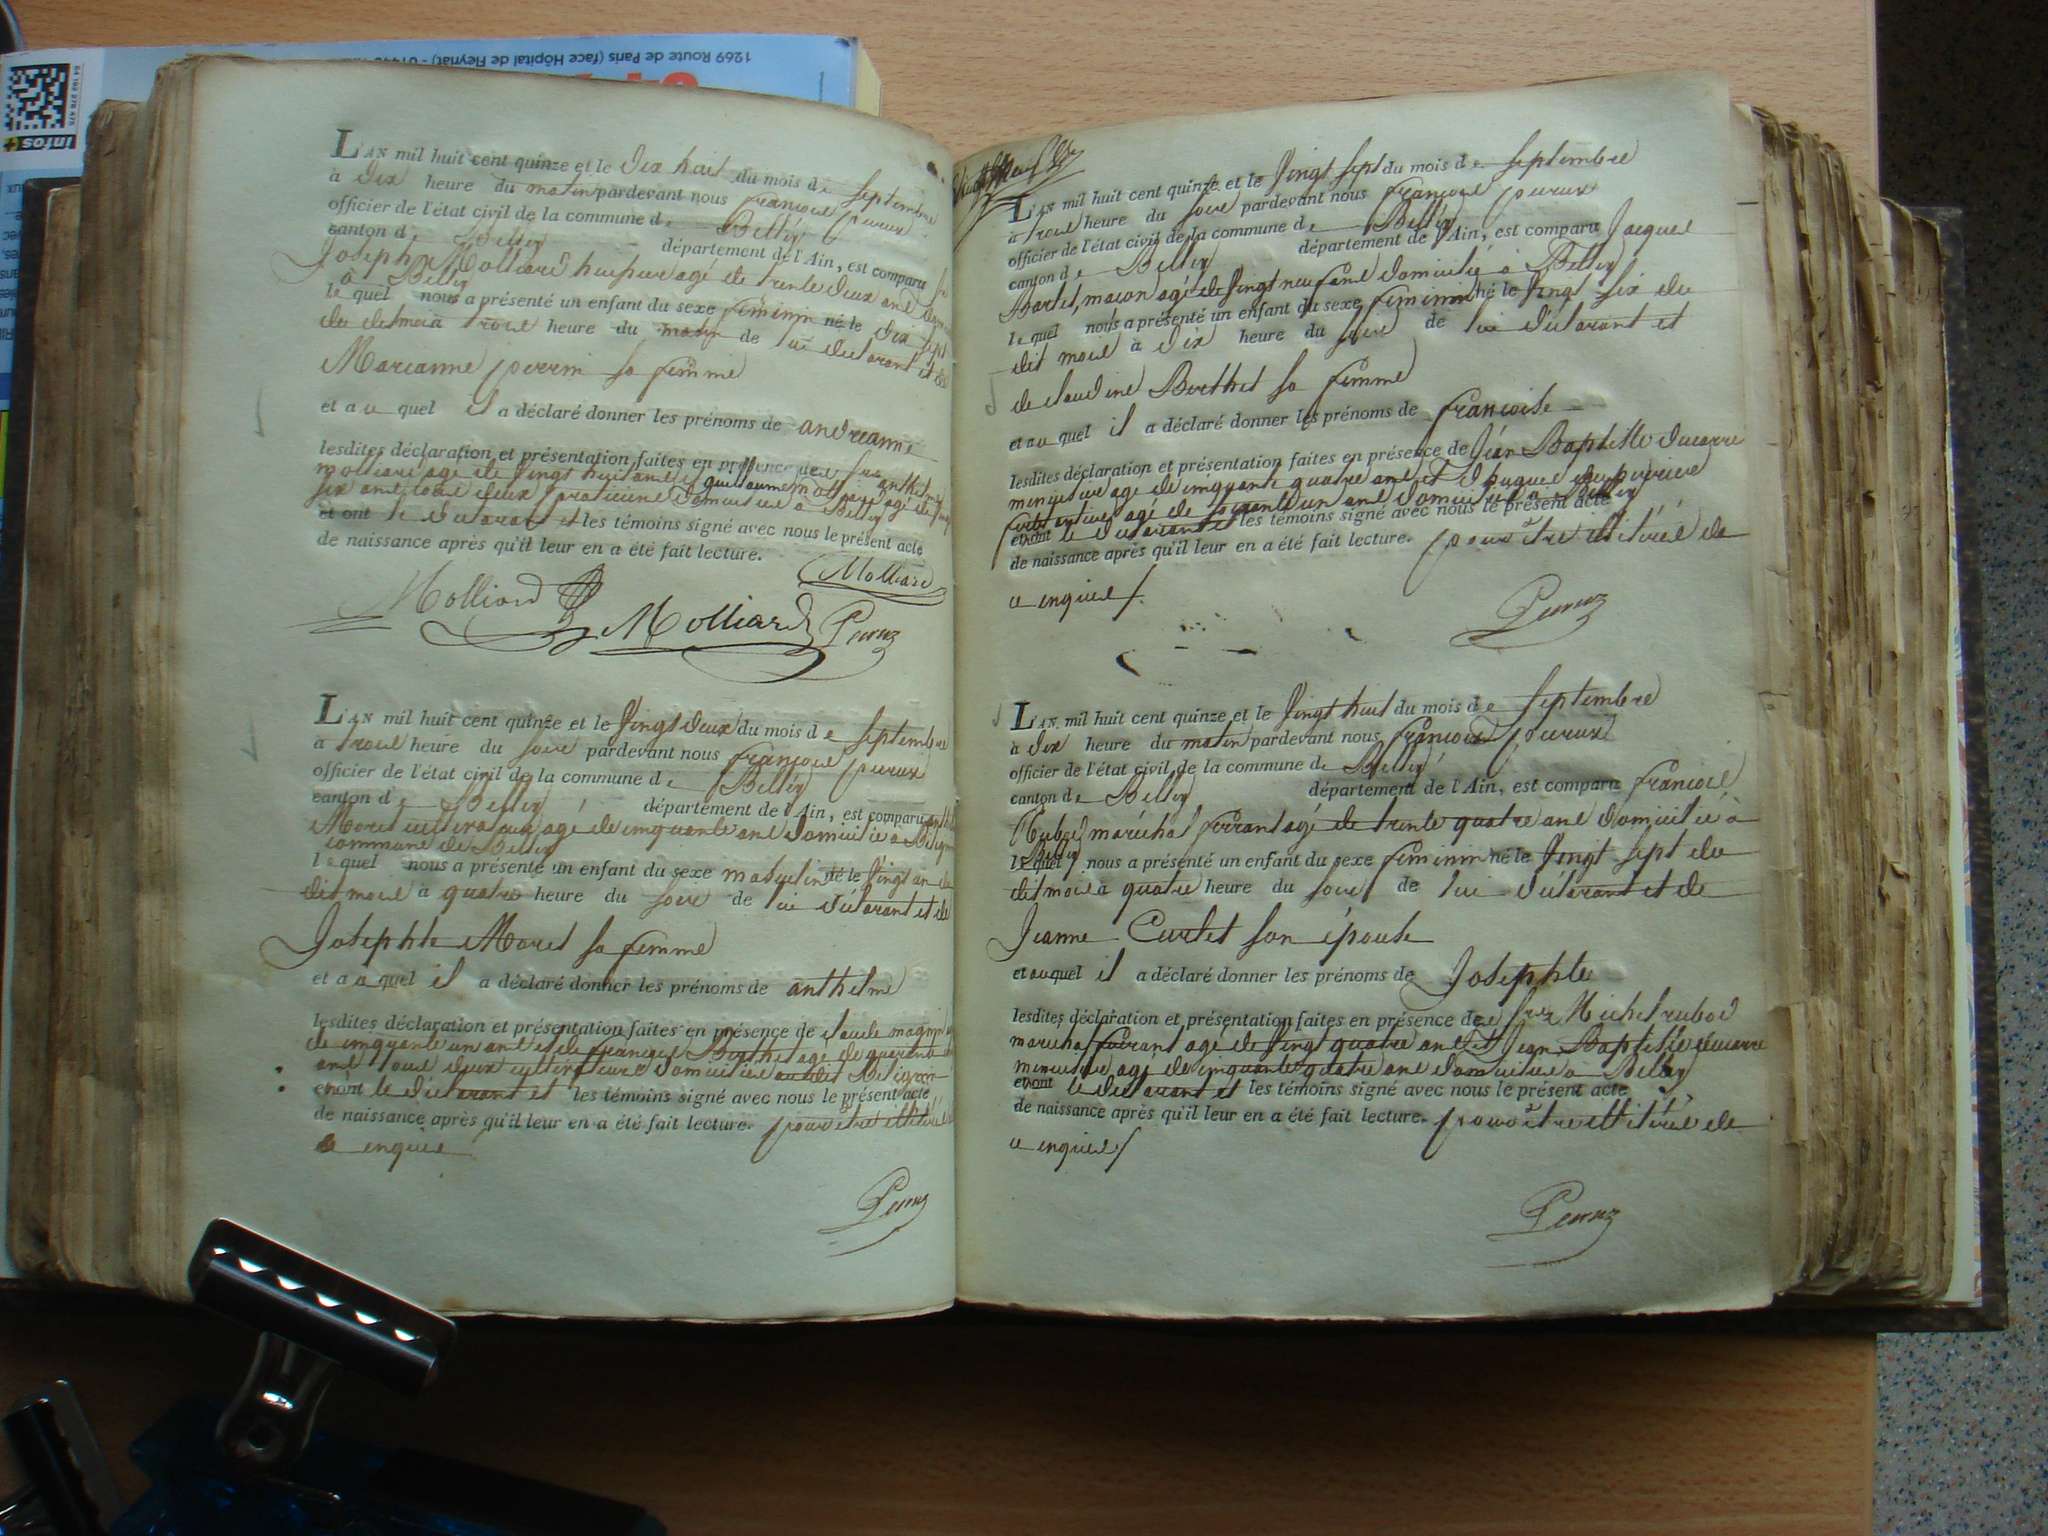 1269 Route de Paris (face Hôpital de Fleyriat)
infos
L'AN mil huit cent quinze et le dix huit du mois de septembre
à dix heure du matin pardevant nous françois peyrux
officier de l'état civil de la commune de Belley
canton de Belley département de l'Ain, est comparu
Joseph Molliard huissier agé de trente deux ans
à Belley
le quel nous a présenté un enfant du sexe féminin né le dix sept
du dit mois à trois heure du matin de lui déclarant et de
Marianne perrin sa femme
et au quel il a déclaré donner les prénoms de andreanne
lesdites déclaration et présentation faites en présence de anthelme
molliard agé de vingt huit ans et guillaume molliard agé de
six ans tous deux domiciliés à Belley
et ont le déclarant et les témoins signé avec nous le présent acte
de naissance après qu'il leur en a été fait lecture.
Molliard
Molliard Molliard
L'AN mil huit cent quinze et le vingt deux du mois de septembre
à trois heure du soir pardevant nous françois peyrux
officier de l'état civil de la commune de Belley
canton de Belley département de l'Ain, est comparu
Moret cultivateur agé de cinquante ans domicilié à
commune de Belley
le quel nous a présenté un enfant du sexe masculin né le vingt un du
dit mois à quatre heure du soir de lui déclarant et de
Josephte Moret sa femme
et au quel il a déclaré donner les prénoms de anthelme
lesdites déclaration et présentation faites en présence de claude
de cinquante un ans et de françois Berthet agé de quarante
ans tous deux cultivateurs domiciliés
et ont le déclarant et les témoins signé avec nous le présent acte
de naissance après qu'il leur en a été fait lecture. pour être illitéré
enquis
L'AN mil huit cent quinze et le vingt sept du mois de septembre
à trois heure du soir pardevant nous françois peyrux
officier de l'état civil de la commune de Belley
canton de Belley département de l'Ain, est comparu Jacques
maçon agé de vingt neuf ans domicilié à Belley
le quel nous a présenté un enfant du sexe féminin né le vingt six du
dit mois à dix heure du soir de lui déclarant et
de claudine Berthet sa femme
et au quel il a déclaré donner les prénoms de françoise
lesdites déclaration et présentation faites en présence de Jean Baptiste ducarre
menuisier agé de cinquante quatre ans et
agé de soixante un ans domiciliés à Belley
et ont le déclarant et les témoins signé avec nous le présent acte
de naissance après qu'il leur en a été fait lecture. pour être illitéré de
ce enquis
L'AN mil huit cent quinze et le vingt huit du mois de septembre
à dix heure du matin pardevant nous françois peyrux
officier de l'état civil de la commune de Belley
canton de Belley département de l'Ain, est comparu françois
Rubod maréchal ferrant agé de trente quatre ans domicilié à
Belley
le quel nous a présenté un enfant du sexe féminin né le vingt sept du
dit mois à quatre heure du soir de lui déclarant et de
Jeanne Curtet son épouse
et au quel il a déclaré donner les prénoms de Josephte
lesdites déclaration et présentation faites en présence de Michel rubod
maréchal ferrant agé de vingt quatre ans et Jean Baptiste ducarre
menuisier agé de cinquante quatre ans domiciliés à Belley
et ont le déclarant et les témoins signé avec nous le présent acte
de naissance après qu'il leur en a été fait lecture. pour être illitéré de
ce enquis